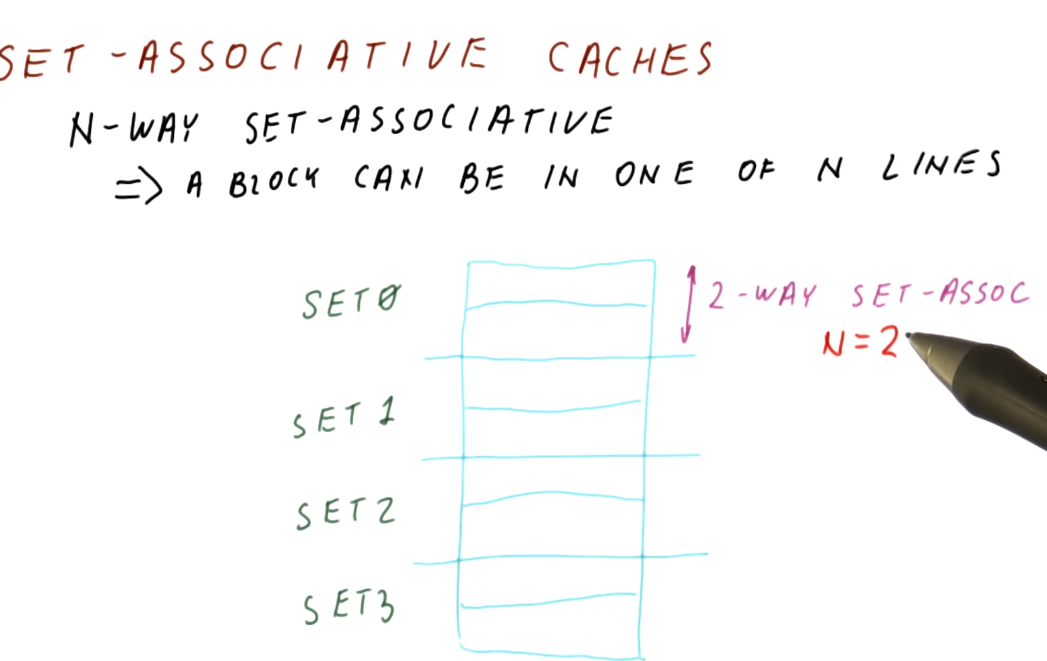 SET-ASSOCIATIVE CACHES
N-WAY SET-ASSOCIATIVE
=> A BLOCK CAN BE IN ONE OF N LINES
SET0
2-WAY SET-ASSOC
N=2
SET 1
SET2
SET3